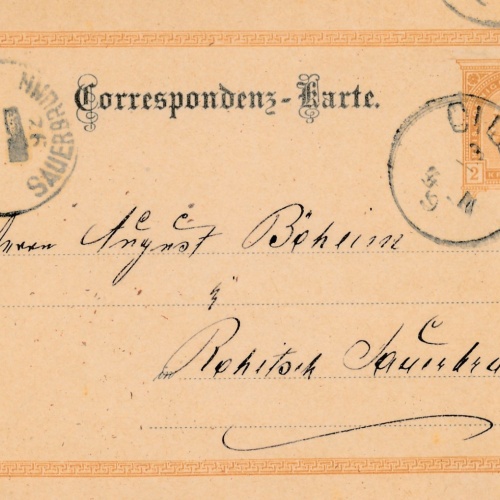 Correspondenz-Karte.
SAUERBRUNN
26
CIL
2
Herrn August Böheim
Rohitsch Sauerbru